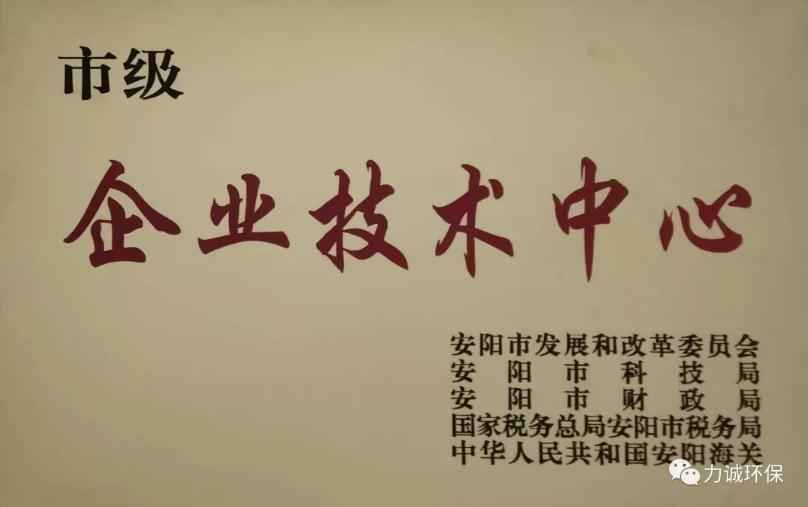 市级
企业技术中心
安阳市发展和改革委员会
安阳市科技局
安阳市财政局
国家税务总局安阳市税务局
中华人民共和国安阳海关
力诚环保